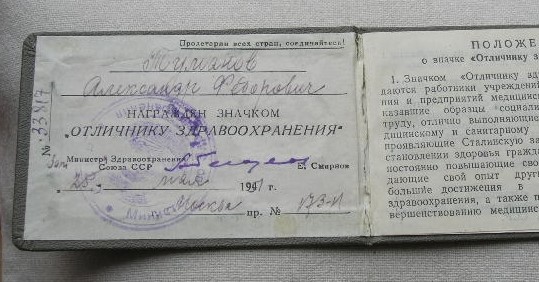 Пролетарии всех стран, соединяйтесь!
Туманов
Александр Федорович
НАГРАЖДЕН ЗНАЧКОМ
„ОТЛИЧНИКУ ЗДРАВООХРАНЕНИЯ“
№ 33417
Министр Здравоохранения
Союза ССР
Е. Смирнов
25 мая
Москва
пр. № 173-н
ПОЛОЖЕ
о значке «Отличнику з
1. Значком «Отличнику зд
даются работники учреждений
ия и предприятий медицинс
казавшие образцы социали
труду, отлично выполняющие
дицинскому и санитарному
проявляющие Сталинскую за
становлении здоровья гражда
постоянно повышающие сво
дающие свой опыт друг
большие достижения в
здравоохранения, а также п
вершенствованию медицинс